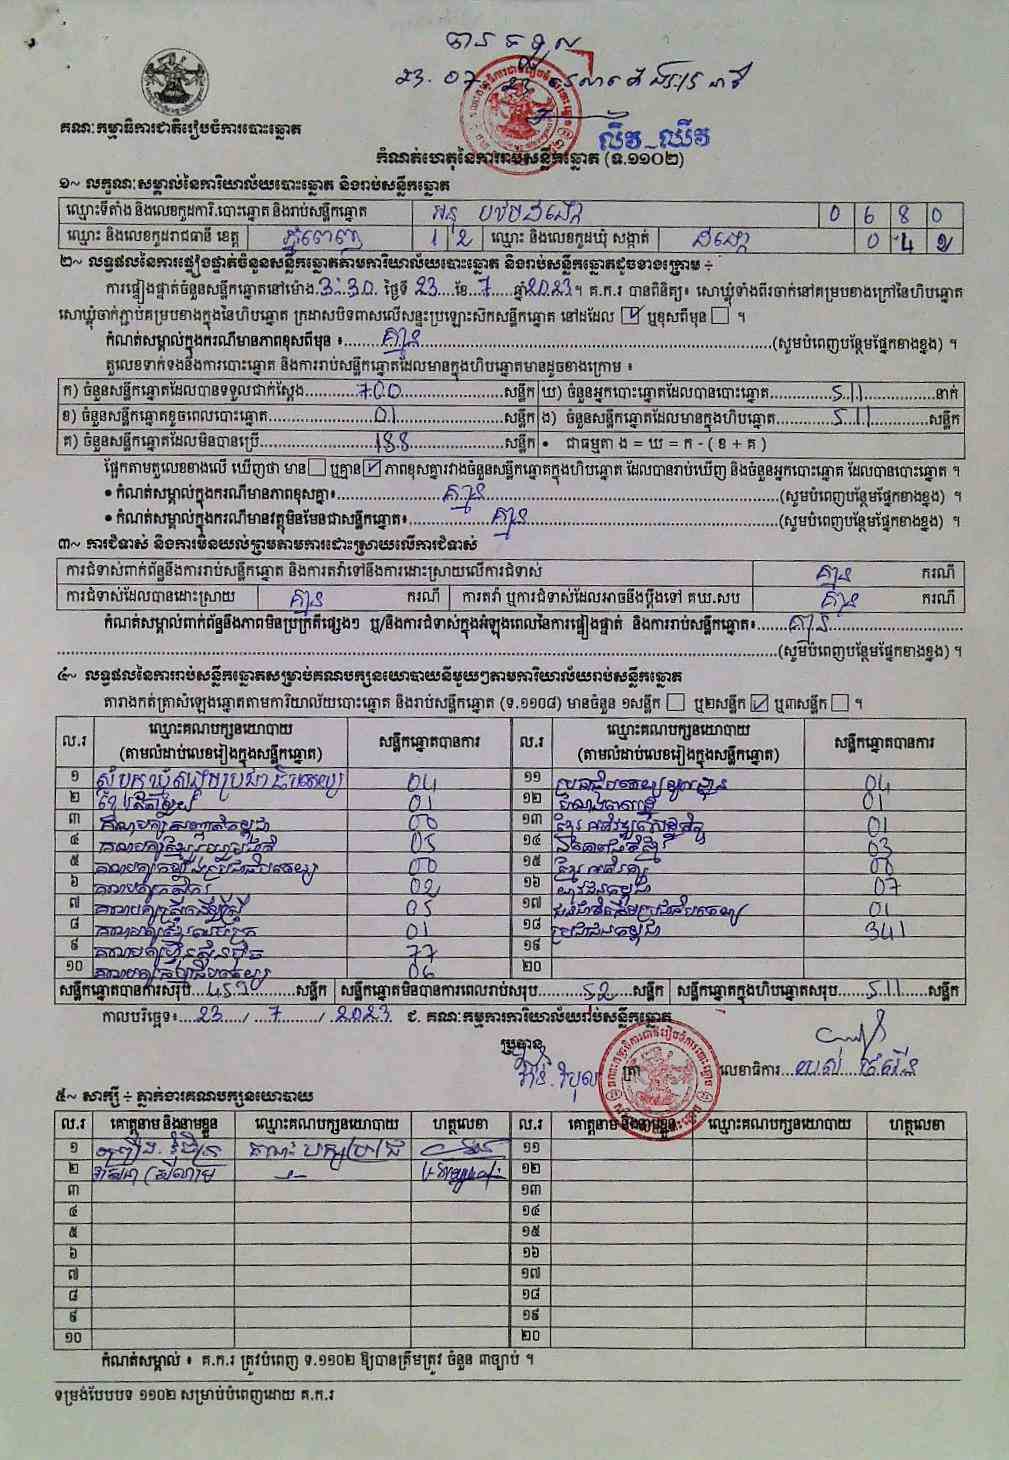 បានទទួល
23.07.23
លឹម ឈីវ
គណៈកម្មាធិការជាតិរៀបចំការបោះឆ្នោត
កំណត់ហេតុនៃការរាប់សន្លឹកឆ្នោត (ទ.១១០២)
១~ លក្ខណៈសម្គាល់នៃការិយាល័យបោះឆ្នោត និងរាប់សន្លឹកឆ្នោត
ឈ្មោះទីតាំង និងលេខកូដការិ.បោះឆ្នោត និងរាប់សន្លឹកឆ្នោត 0 6 8 0
ឈ្មោះ និងលេខកូដរាជធានី ខេត្ត ភ្នំពេញ 1 2 ឈ្មោះ និងលេខកូដឃុំ សង្កាត់ ដង្កោ 0 4
២~ លទ្ធផលនៃការផ្ទៀងផ្ទាត់ចំនួនសន្លឹកឆ្នោតតាមការិយាល័យបោះឆ្នោត និងរាប់សន្លឹកឆ្នោតដូចខាងក្រោម ៖
ការផ្ទៀងផ្ទាត់ចំនួនសន្លឹកឆ្នោតនៅម៉ោង 3:30 ថ្ងៃទី 23 ខែ 7 ឆ្នាំ 2023។ គ.ក.រ បានពិនិត្យ៖ សោឃ្លុំទាំងពីរចាក់នៅគម្របខាងក្រៅនៃហិបឆ្នោត
សោឃ្លុំចាក់ភ្ជាប់គម្របខាងក្នុងនៃហិបឆ្នោត ក្រដាសបិទពាសលើសន្ទះប្រឡោះសិកសន្លឹកឆ្នោត នៅដដែល ☑ ឬខុសពីមុន ☐ ។
កំណត់សម្គាល់ក្នុងករណីមានភាពខុសពីមុន ៖ គ្មាន (សូមបំពេញបន្ថែមផ្នែកខាងខ្នង) ។
តួលេខទាក់ទងនឹងការបោះឆ្នោត និងការរាប់សន្លឹកឆ្នោតដែលមានក្នុងហិបឆ្នោតមានដូចខាងក្រោម ៖
ក) ចំនួនសន្លឹកឆ្នោតដែលបានទទួលជាក់ស្តែង 700 សន្លឹក ឃ) ចំនួនអ្នកបោះឆ្នោតដែលបានបោះឆ្នោត 511 នាក់
ខ) ចំនួនសន្លឹកឆ្នោតខូចពេលបោះឆ្នោត 01 សន្លឹក ង) ចំនួនសន្លឹកឆ្នោតដែលមានក្នុងហិបឆ្នោត 511 សន្លឹក
គ) ចំនួនសន្លឹកឆ្នោតដែលមិនបានប្រើ 188 សន្លឹក • ជាធម្មតា ង = ឃ = ក - ( ខ + គ )
ផ្អែកតាមតួលេខខាងលើ ឃើញថា មាន ☐ ឬគ្មាន ☑ ភាពខុសគ្នារវាងចំនួនសន្លឹកឆ្នោតក្នុងហិបឆ្នោត ដែលបានរាប់ឃើញ និងចំនួនអ្នកបោះឆ្នោត ដែលបានបោះឆ្នោត ។
• កំណត់សម្គាល់ក្នុងករណីមានភាពខុសគ្នា៖ គ្មាន (សូមបំពេញបន្ថែមផ្នែកខាងខ្នង) ។
• កំណត់សម្គាល់ក្នុងករណីមានវត្ថុមិនមែនជាសន្លឹកឆ្នោត៖ គ្មាន (សូមបំពេញបន្ថែមផ្នែកខាងខ្នង) ។
៣~ ការជំទាស់ និងការមិនយល់ព្រមតាមការដោះស្រាយលើការជំទាស់
ការជំទាស់ពាក់ព័ន្ធនឹងការរាប់សន្លឹកឆ្នោត និងការតវ៉ាទៅនឹងការដោះស្រាយលើការជំទាស់ គ្មាន ករណី
ការជំទាស់ដែលបានដោះស្រាយ គ្មាន ករណី ការតវ៉ា ឬការជំទាស់ដែលអាចនឹងប្តឹងទៅ គឃ.សប គ្មាន ករណី
កំណត់សម្គាល់ពាក់ព័ន្ធនឹងភាពមិនប្រក្រតីផ្សេងៗ ឬ/និងការជំទាស់ក្នុងអំឡុងពេលនៃការផ្ទៀងផ្ទាត់ និងការរាប់សន្លឹកឆ្នោត៖ គ្មាន
(សូមបំពេញបន្ថែមផ្នែកខាងខ្នង) ។
៤~ លទ្ធផលនៃការរាប់សន្លឹកឆ្នោតសម្រាប់គណបក្សនយោបាយនីមួយៗតាមការិយាល័យរាប់សន្លឹកឆ្នោត
តារាងកត់ត្រាសំឡេងឆ្នោតតាមការិយាល័យបោះឆ្នោត និងរាប់សន្លឹកឆ្នោត (ទ.១១០៨) មានចំនួន ១សន្លឹក ☐ ឬ២សន្លឹក ☑ ឬ៣សន្លឹក ☐ ។
ល.រ ឈ្មោះគណបក្សនយោបាយ (តាមលំដាប់លេខរៀងក្នុងសន្លឹកឆ្នោត) សន្លឹកឆ្នោតបានការ ល.រ ឈ្មោះគណបក្សនយោបាយ (តាមលំដាប់លេខរៀងក្នុងសន្លឹកឆ្នោត) សន្លឹកឆ្នោតបានការ
១ សំបុកឃ្មុំសង្គមប្រជាធិបតេយ្យ 04 ១១ 04
២ ខ្មែររួបរួមជាតិ 01 ១២ 01
៣ 00 ១៣ 01
៤ 05 ១៤ 03
៥ 00 ១៥ 00
៦ គណបក្សកសិករ 02 ១៦ យុវជនកម្ពុជា 07
៧ គណបក្សស្ត្រីដើម្បីស្ត្រី 05 ១៧ 01
៨ 01 ១៨ ប្រជាជនកម្ពុជា 341
៩ គណបក្សហ៊្វុនស៊ិនប៉ិច 77 ១៩
១០ 06 ២០
សន្លឹកឆ្នោតបានការសរុប 459 សន្លឹក សន្លឹកឆ្នោតមិនបានការពេលរាប់សរុប 52 សន្លឹក សន្លឹកឆ្នោតក្នុងហិបឆ្នោតសរុប 511 សន្លឹក
កាលបរិច្ឆេទ៖ 23 / 7 / 2023 ជ. គណៈកម្មការការិយាល័យរាប់សន្លឹកឆ្នោត
ប្រធាន ត្រា លេខាធិការ
៥~ សាក្សី ៖ ភ្នាក់ងារគណបក្សនយោបាយ
ល.រ គោត្តនាម និងនាមខ្លួន ឈ្មោះគណបក្សនយោបាយ ហត្ថលេខា ល.រ គោត្តនាម និងនាមខ្លួន ឈ្មោះគណបក្សនយោបាយ ហត្ថលេខា
១ ១១
២ ១២
៣ ១៣
៤ ១៤
៥ ១៥
៦ ១៦
៧ ១៧
៨ ១៨
៩ ១៩
១០ ២០
កំណត់សម្គាល់ ៖ គ.ក.រ ត្រូវបំពេញ ទ.១១០២ ឱ្យបានត្រឹមត្រូវ ចំនួន ៣ច្បាប់ ។
ទម្រង់បែបបទ ១១០២ សម្រាប់បំពេញដោយ គ.ក.រ